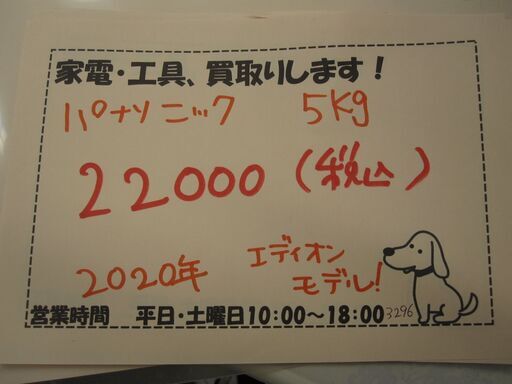 家電・工具、買取りします！
パナソニック 5Kg
22000（税込）
2020年 エディオン
モデル!
営業時間 平日・土曜日10:00～18:00 3296